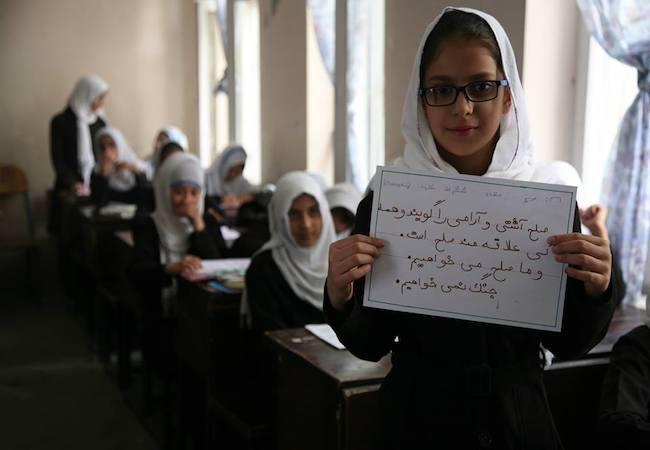 صلح آشتی و آرامی را گویند و همه
ئی علاقه مند صلح است.
و ما صلح می خواهیم.
جنگ نمی خواهیم.